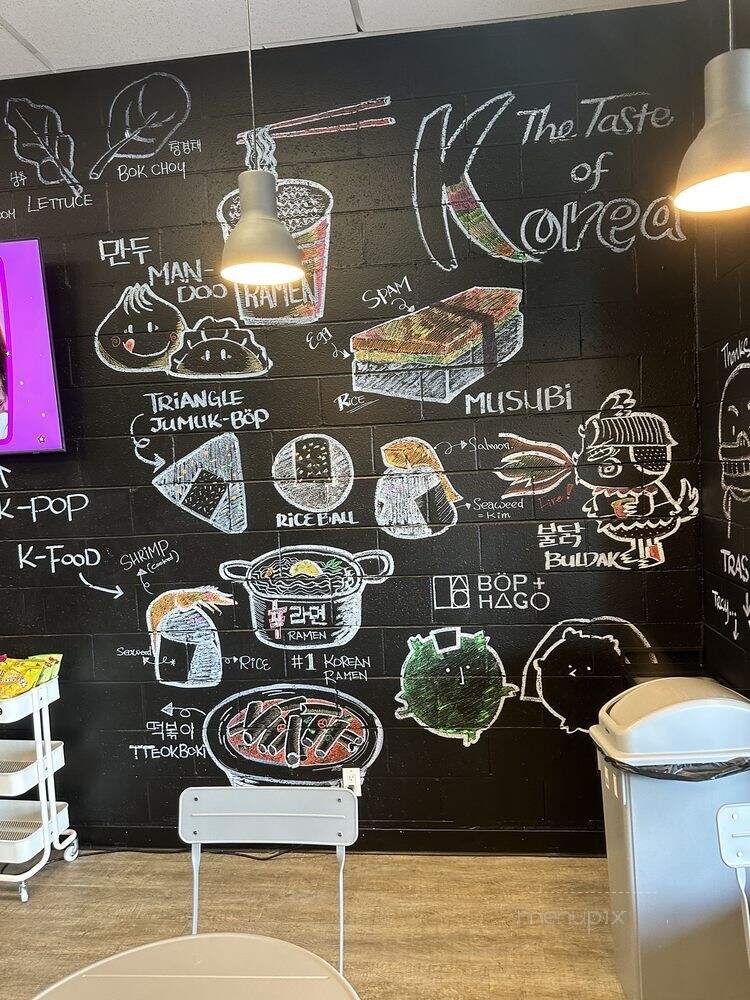 청경채
BOK CHOY
상추
LETTUCE
OOM
The Taste
of
Korea
만두
MAN-
DOO
RAMEN
SPAM
Egg
RICE
MUSUBI
TRIANGLE
JUMUK-BÖP
RICE BALL
Salmon
Seaweed
= Kim
Fire!
불닭
BULDAK
Thanks
K-POP
K-FOOD
SHRIMP
(cooked)
Seaweed
RICE
라면
RAMEN
#1 KOREAN
RAMEN
BÖP+
HAGO
TRAS
떡볶이
TTEOKBOKI
menupix